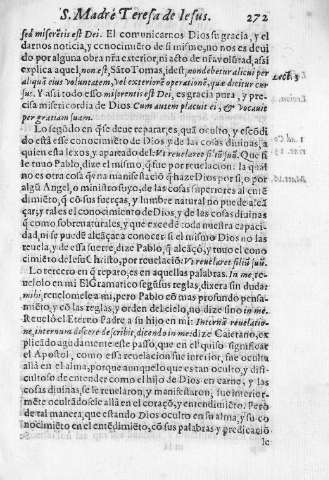 S. Madrè Teresa de Iesus. 272
sed miserētis est Dei. El comunicarnos Dios su gracia, y el
darnos noticia, y conocimiēto de si mismo, no nos es deui
do por alguna obra nr̄a exterior, ni acto de nr̄a volūtad, assi
explica aquel, non est, Sāto Tomas, id est, non debetur alicui per
aliquā eius voluntatem, vel exteriorē operationē, quæ dicitur cur
sus. Y assi todo esso miserentis est Dei, es gracia pura, y pre-
cisa misericordia de Dios Cum autem placuit ei, & vocauit
per gratiam suam.
Lo segūdo en q̄ se deue reparar es, quā oculto, y escōdi
do està esse conocimiēto de Dios y de las cosas diuinas, a
quien esta lexos, y apartado del: Vt reuelaret filiū suū. Que si
le tuuo Pablo, dize el mismo, q̄ fue por reuelacion: la qual
no es otra cosa q̄ vna manifestaciō q̄ haze Dios por si, o por
algū Angel, o ministro suyo, de las cosas superiores al entē
dimiēto, q̄ cō sus fuerças, y lumbre natural no puede alcā
çar; y tales el conocimiento de Dios, y de las cosas diuinas
q̄ como sobrenaturales, y que excedē toda nuestra capaci-
dad, ni se puede alcāçar a conocer si el mismo Dios no las
reuela, y de essa suerte, dize Pablo, q̄ alcāçò, y tuuo el cono
cimiēto de Iesu Christo, por reuelaciō: Vt reuelaret filiū suū.
Lo tercero en q̄ reparo, es en aquellas palabras. In me, re
uelolo en mi El Gramatico segūsus reglas, dixera sin duda
mihi, reuelomele a mi, pero Pablo cō mas profundo pensa-
miēto, y cō las reglas, y orden del cielo, no dize sino in me.
Reuelò el Eterno Padre a su hijo en mi: Internā reuelatio-
ne, internum discere describit, dicendo in me: dize Caietano, ex
plicado agudamente este passo, que en el quiso significar
el Apostol, como essa reuelacion fue interior, fue oculta
allà en el alma, porque aunque lo que es tan oculto, y difi-
cultoso de entender como el hijo de Dios en carne, y las
cosas diuinas, se le reuelaron, y manifestaron, fue interior-
mēte ocultādosele allà en el coraçō, y entendimiēto. Pero
de tal manera, que estando Dios oculto en su alma, y su co
nocimiēto en el entēdimiēto, cō sus palabras y predicaciō
le